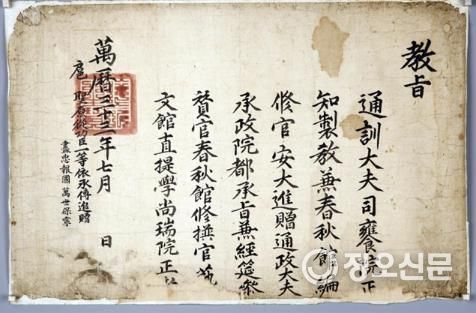 教旨
通訓大夫司饔院正
知製教兼春秋館編
修官安大進贈通政大夫
承政院都承旨兼經筵參
贊官春秋館修撰官兼
文館直提學尚瑞院正者
萬曆三十三年七月 日
扈 聖原從功臣一等依承傳追贈
盡忠報國 萬世保寧
정오신문